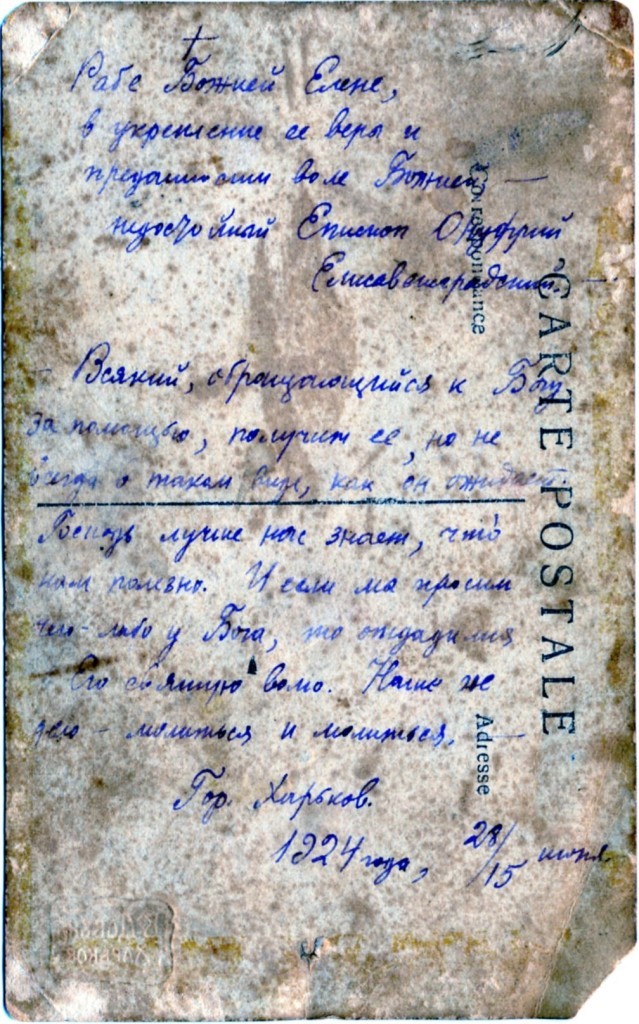 Рабе Божией Елене,
в укрепление ее веры и
преданности воле Божией —
недостойный Епископ Онуфрий
Елисаветградский.
Всякий, обращающийся к Богу
за помощью, получит ее, но не
всегда в таком виде, как он ожидает.
Господь лучше нас знает, что
нам полезно. И если мы просим
чего-либо у Бога, то
Его святую волю. Наше же
дело – молиться и молиться. —
Гор. Харьков.
1924 года, 28/15 июня
CARTE POSTALE
Correspondance
Adresse